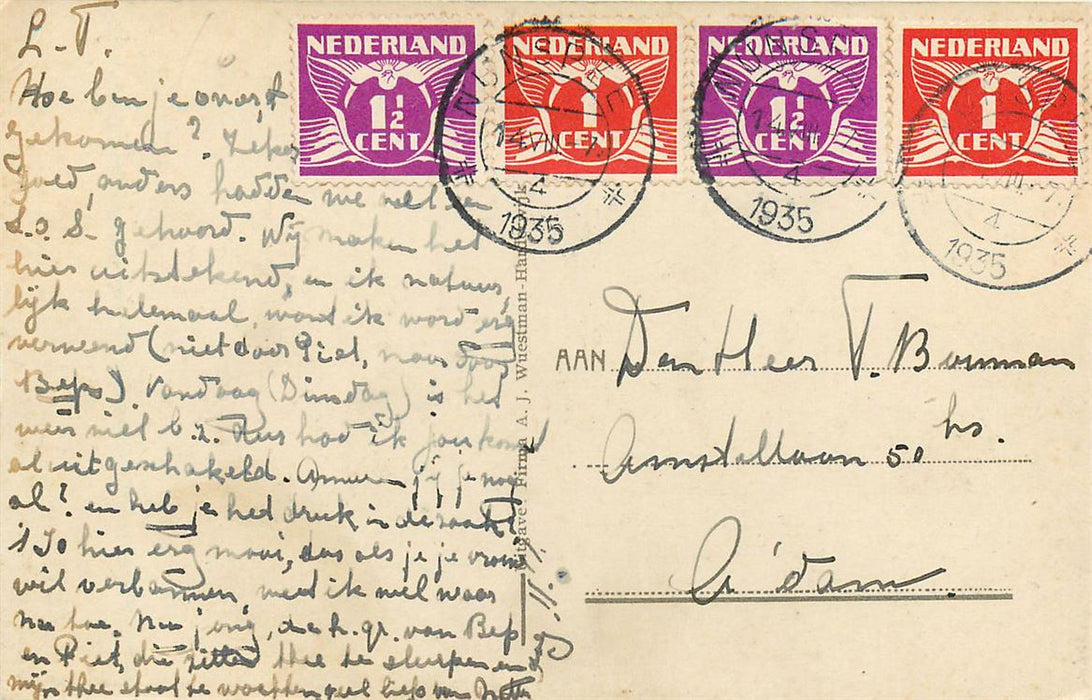 L.T.
Hoe ben je overst
gekomen? Zeker
goed, anders hadden we wel een
S.O.S. gehoord. Wij maken het
hier uitstekend, en ik natuur,
lijk helemaal, want ik word erg
verwend (niet door Piet, maar door
Beps). Vandaag (Dinsdag) is het
weer niet b.z. dus had ik jou komst
al uitgeschakeld. Amuseer jij je nog
al? en heb je het druk in de zaak?
't Is hier erg mooi, dus als je je vrouw
wil verbannen, weet ik wel waar
na toe. Nu jong, de h. gr. van Bep
en Piet, die zitten thee te slurpen en
mijn thee staat te wachten veel liefs van
NEDERLAND
1½
CENT
NEDERLAND
1
CENT
NEDERLAND
1½
CENT
NEDERLAND
1
CENT
NUNSPEET
14 VIII
4
1935
NUNSPEET
14 VIII
4
1935
4
1935
Uitgave: Firma A. J. Wuestman-Har
AAN Den Heer T. Bouman
Amstellaan 50 hs.
A'dam.